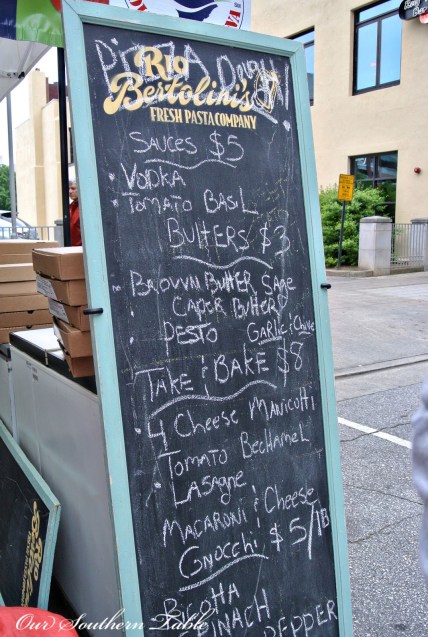 Pizza Dough!
Rio
Bertolini's
FRESH PASTA COMPANY
SAUCES $5
VODKA
TOMATO BASIL
BUTTERS $3
BROWN BUTTER SAGE
CAPER BUTTER
PESTO GARLIC & CHIVE
TAKE & BAKE $8
4 CHEESE MANICOTTI
TOMATO BECHAMEL
LASAGNE
MACARONI & CHEESE
GNOCCHI $5/lB
RICOTTA
SPINACH
PEPPER
Our Southern Table